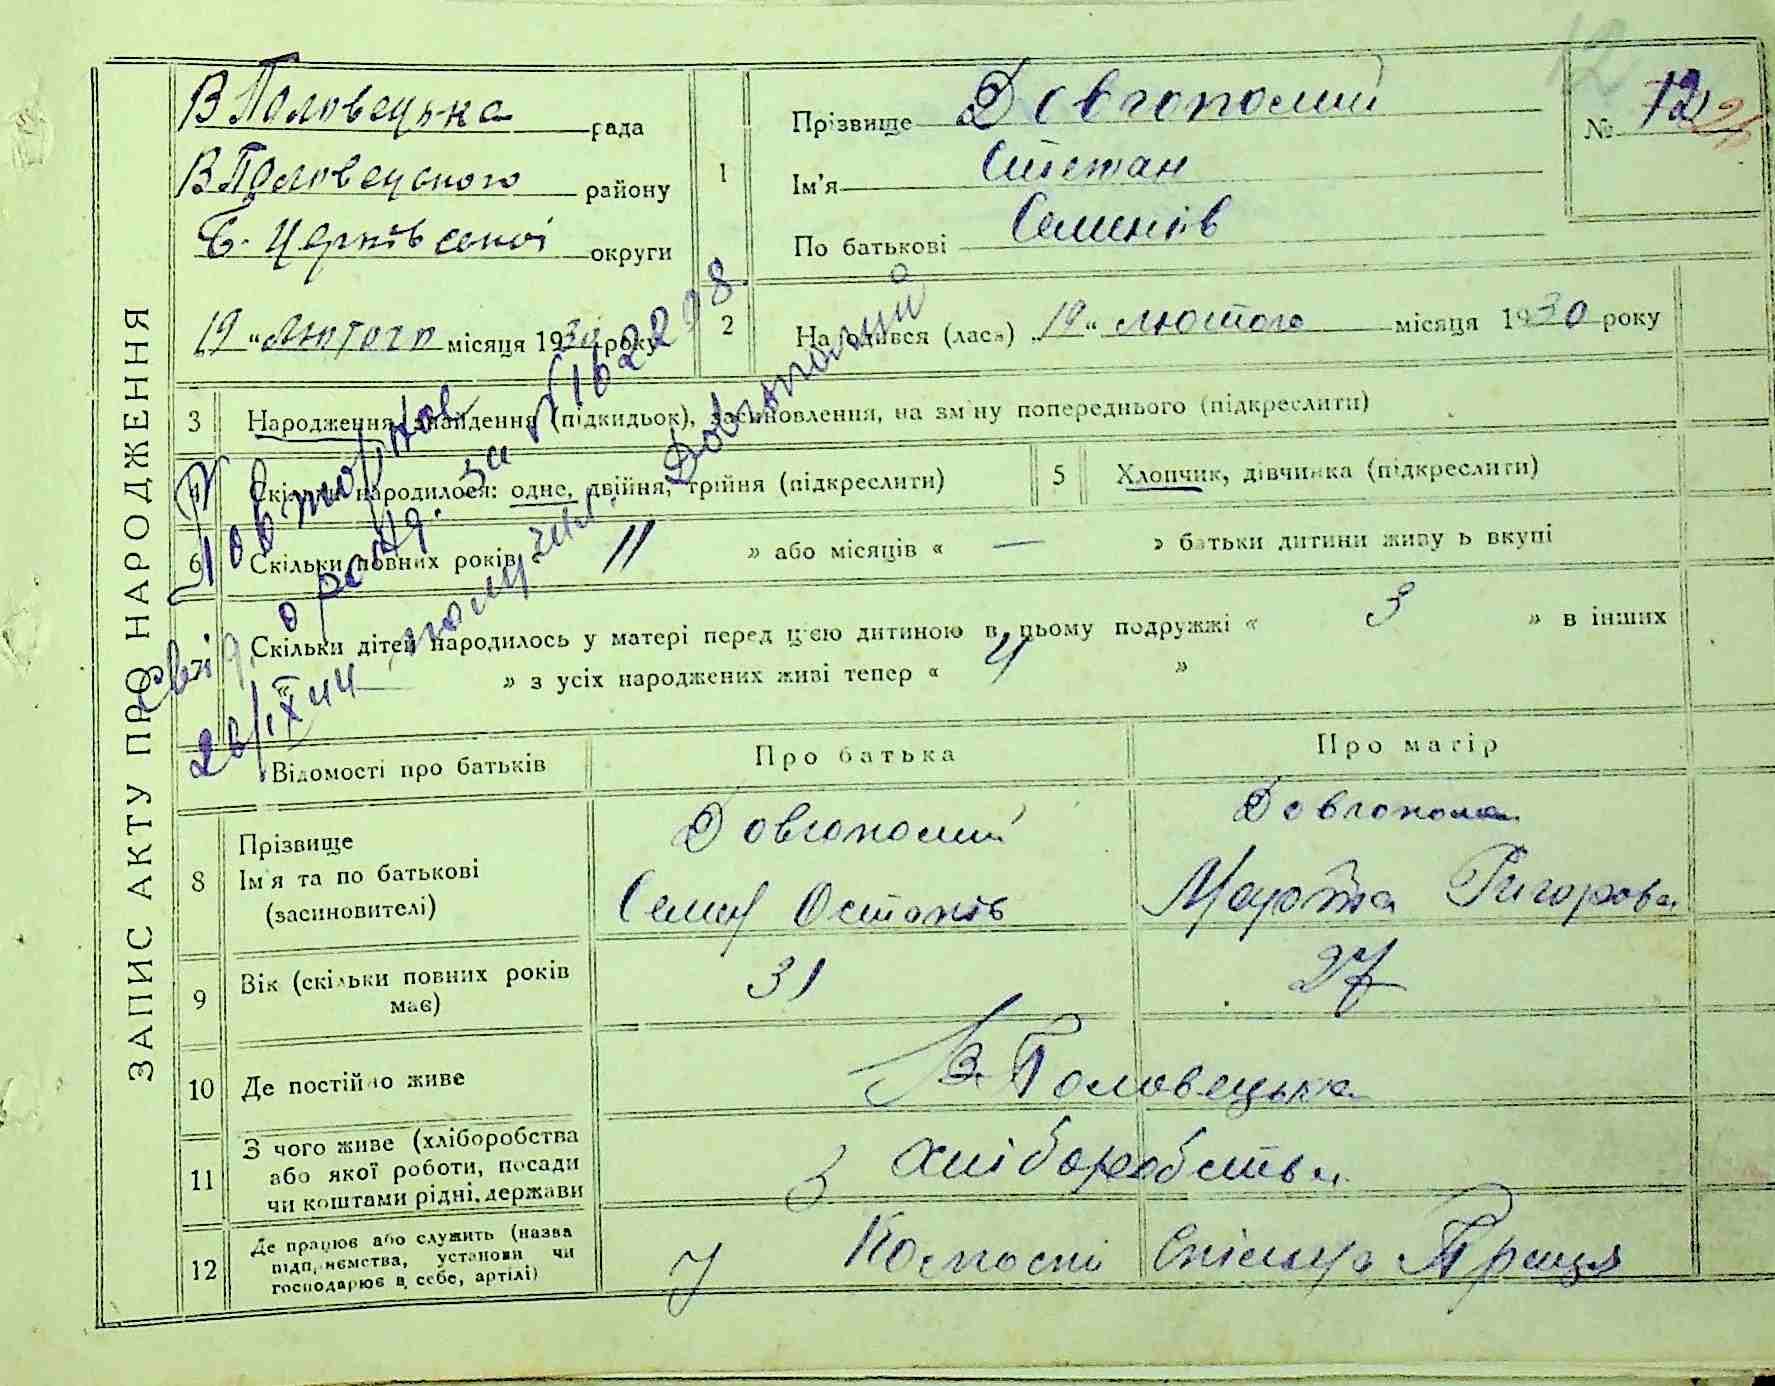 ЗАПИС АКТУ ПРО НАРОДЖЕННЯ
В Половецька рада
В Половецького району
Б. Церківської округи
19 „ Лютого місяця 1930 року
1
Прізвище Довгополий
Ім'я Степан
По батькові Семенів
12
№ 12
2
Народився (лась) „19“ лютого місяця 1930 року
3 Народження, знайдення (підкидьок), засиновлення, на зміну попереднього (підкреслити)
4 Скільки народилося: одне, двійня, трійня (підкреслити)
5 Хлопчик, дівчинка (підкреслити)
6 Скільки повних років 11 » або місяців « — » батьки дитини живуть вкупі
Скільки дітей народилось у матері перед цією дитиною в цьому подружжі « 3 » в інших
« — » з усіх народжених живі тепер « 4 »
Повторнов
Свід. о рожд. за № 162298
26/IX 44 получил Довгополий
Відомості про батьків
Про батька
Про матір
8 Прізвище
Ім'я та по батькові
(засиновителі)
Довгополий
Семен Остапів
Довгопола
Марфта Григорова
9 Вік (скільки повних років
має)
31
27
10 Де постійно живе
В. Половецька
11 З чого живе (хліборобства
або якої роботи, посади
чи коштами рідні, держави
З хліборобства
12 Де працює або служить (назва
підприємства, установи чи
господарює в себе, артілі)
У Колгоспі Спільна Праця